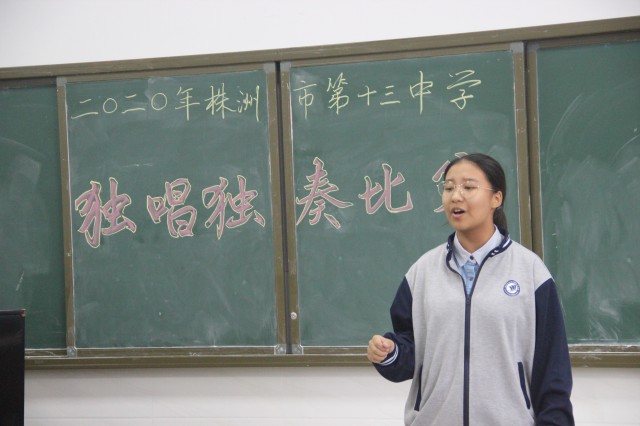 二〇二〇年株洲市第十三中学
独唱独奏比